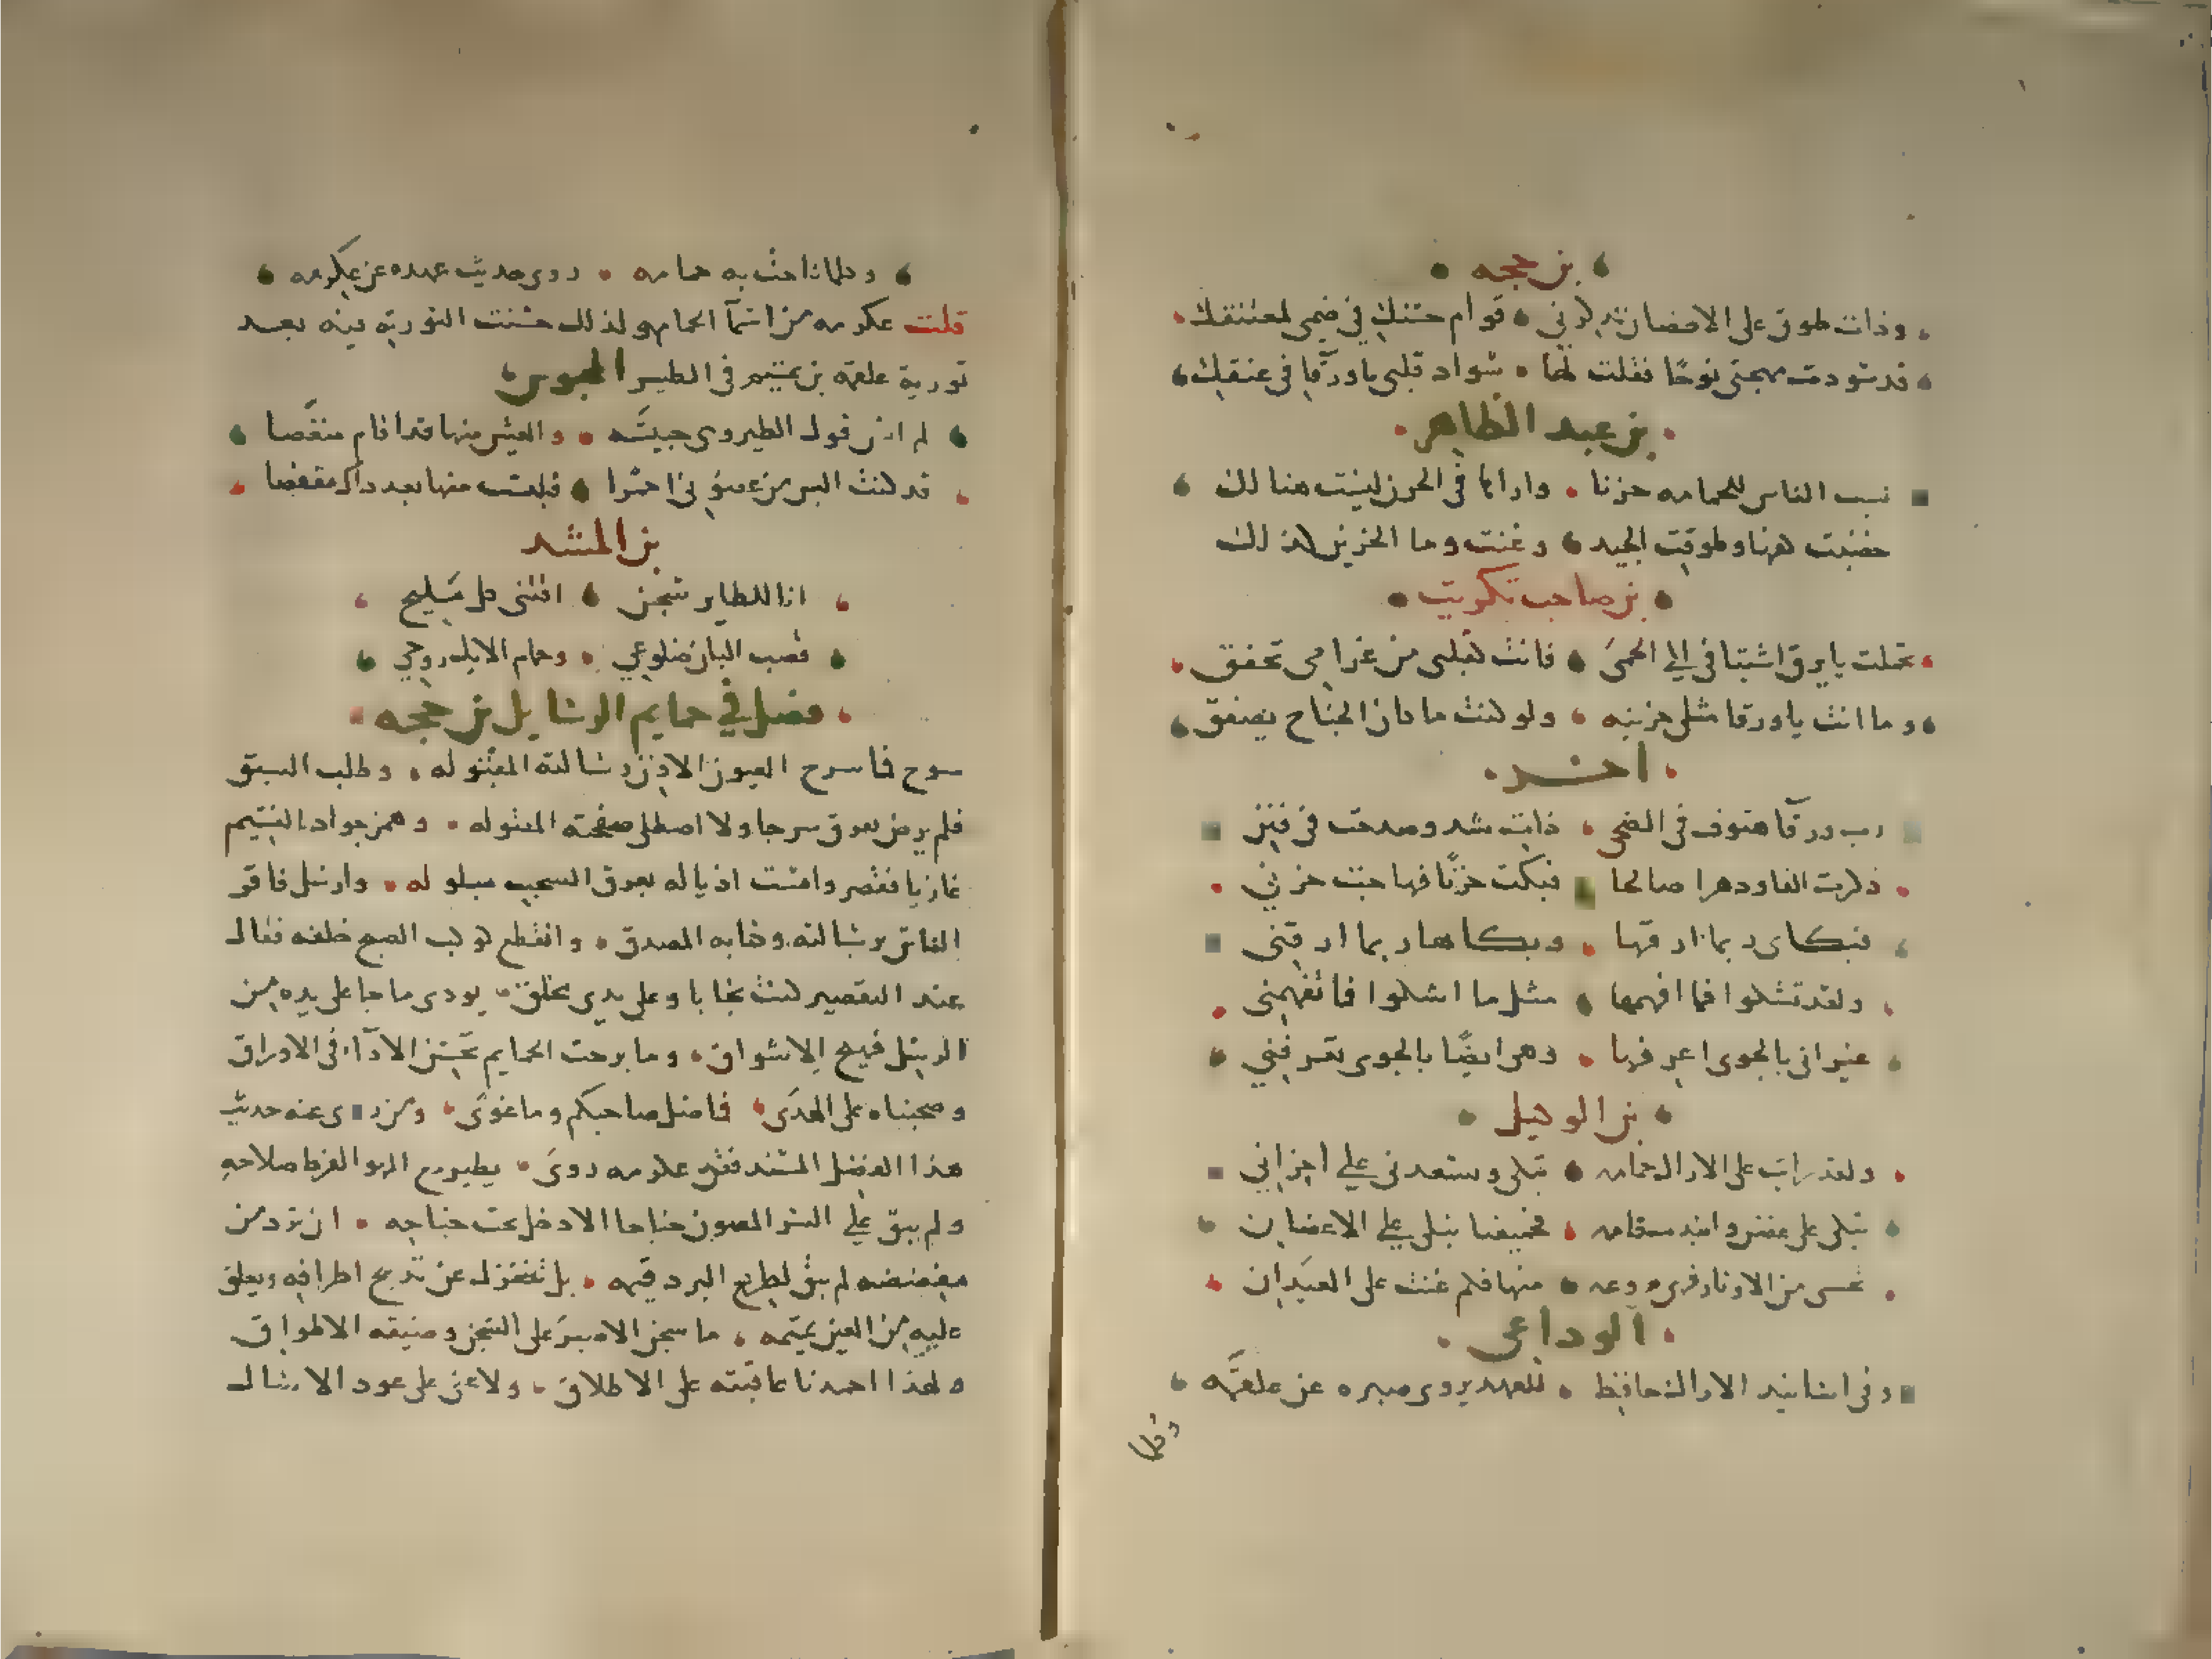 بن حجه
وذات طوق على الاغصان تذكرني قوام حسنك في ضمي لمعتنقك
قد سودت مهجتي نوحًا فقلت لها سواد قلبي يا ورقا في عنقك
بن عبد الظاهر
نسب الناس للحمامه حزنا واراها في الحزن ليست هنالك
خضبت كفها وطوقت الجيد وغنت وما الحزين كذلك
بن صاحب تكريت
تحملت يا برق اشتياقي الى الحمى فانت كقلبي من غرامي تخفق
وما انت يا ورقا مثلي حزينه ولو كنت ما كان الجناح يصفق
اخر
رب ورقا هتوف في الضحى ذات شدو صدحت في فنن
ذكرت الفا ودهرا صالحا فبكت حزنًا فهاجت حزني
فبكاي ربما ارقها وبكاها ربما ارقني
ولقد تشكوا فما افهمها مثل ما اشكوا فما تفهمني
غير اني بالجوى اعرفها وهي ايضًا بالجوى تعرفني
بن الوكيل
ولقد رايت على الاراك حمامه تبكي وتسعدني على احزاني
تبكي على غصن واندب قامه فجميعنا يبكي على الاغصان
تخشى من الاوتار وهي مروعه منها فلم غنت على العيدان
الوداعي
وفي اسانيد الاراك حافظ للعهد يروي صبره عن علقمه
وكلما
وكلما ناحت به حمامه روى حديث عهده عن عكرمه
قلت عكرمه من اسما الحمام ولذلك حسنت التورية فيه بعد
تورية علقمه بن تميم في الطير
لم انس قول الطير وهي حبيسه والعيش منها قد اقام منغصا
قد كنت البس من غصوني اخضرا فلبست منها بعد ذاك مقفصا
بن المشد
انا للطاير سجن اقتني كل مليح
قضب البان ضلوعي وحمام الايك روحي
فصل في حمايم الرسايل بن حجه
سرح فما سرح العيون الا دون رسالته المقبوله وطلب السبق
فلم يرض بعرق سرجا ولا امتطى صفحته المصقوله وهمز جواد النسيم
فقصر وامست اذياله بعرق السحب مبلوله وارسل فاقر
الناس برسالته وكتابه المصدق وانقطع كوكب الصبح خلفه فقال
عند التقصير كنت نجابا وعلى يدي مخلق يودي ما جا على يده من
الرسل فهيج الاشواق وما برحت الحمايم تحسن الادآء في الاوراق
وصحبناه على الهدى فما ضل صاحبكم وما غوى ومن روى عنه حديث
هذا الفضل المسند فعن عكرمه روى يطير مع الهوا لفرط صلاحه
ولم يبق على السر المصون جناحا الا دخل تحت جناحه ان برد من
مقفصه لم يبق لطرح البرد قيمه بل ينعزل عن تدبيج اطرافه ويعلق
عليه من العين تميمه ما سجن الا صبر على السجن وضيقه الاطواق
ولهذا احمدنا عاقبته على الاطلاق ولا غنى على عود الا اسال